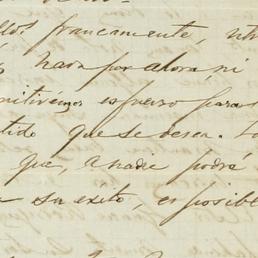 francamente, 
hara por ahora, ni
omitiremos esfuerzo para
tido que se desea. 
que, a nadie podrá
su exito, es posible